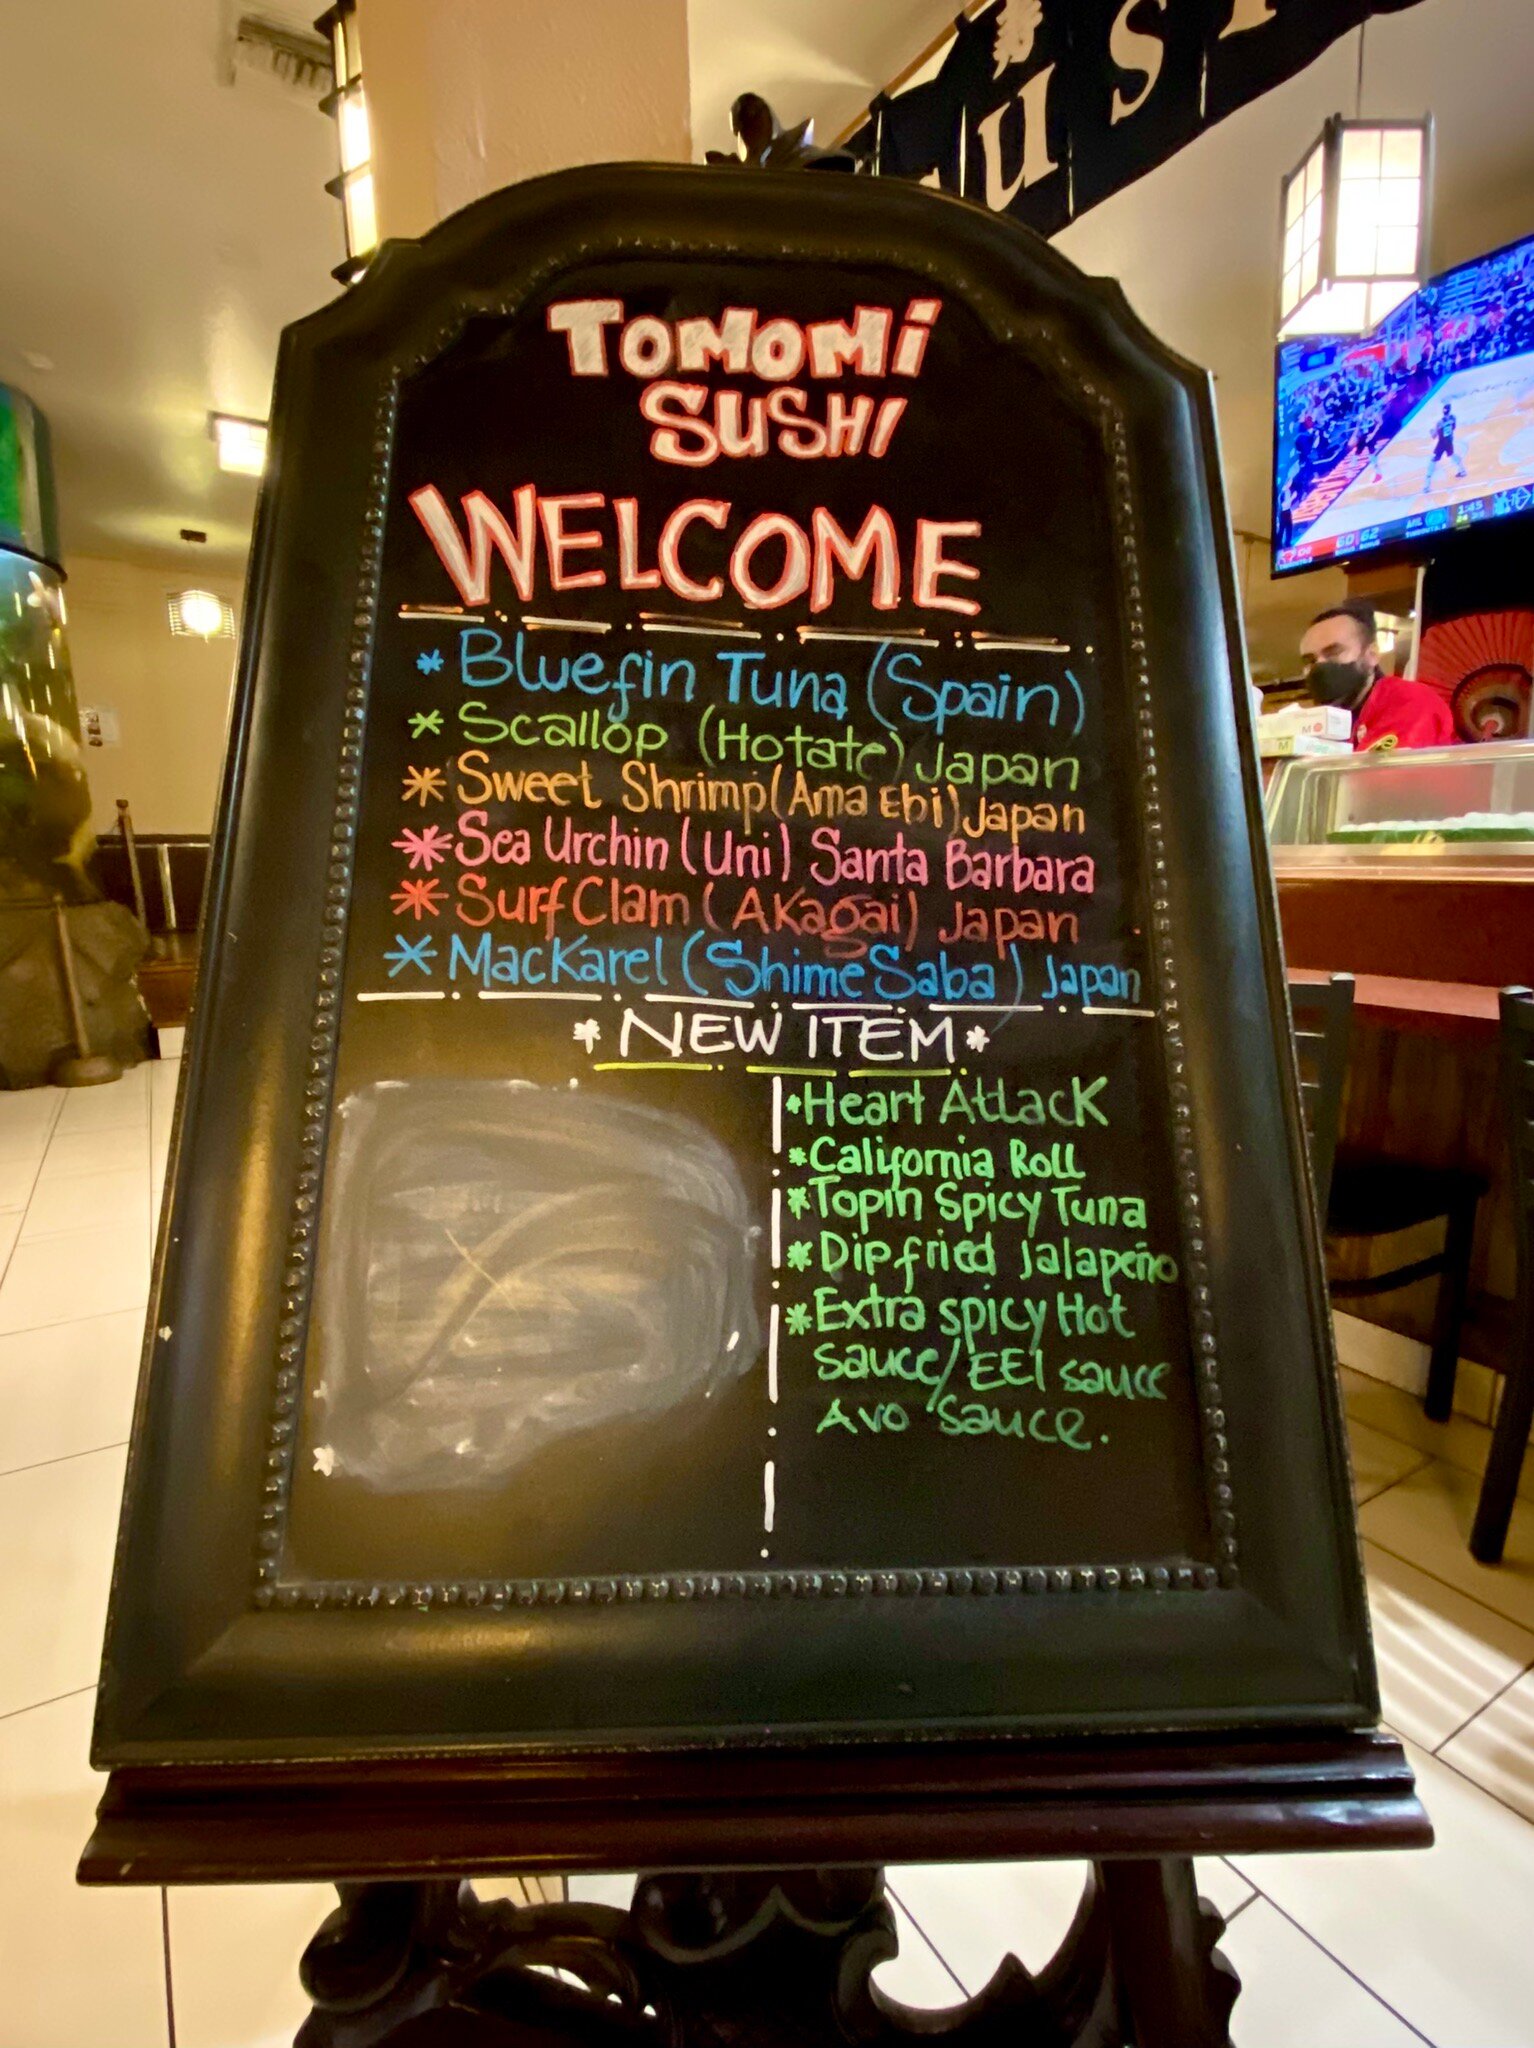 寿
USI
TOMOMI
SUSHI
WELCOME
* Bluefin Tuna (Spain)
* Scallop (Hotate) Japan
* Sweet Shrimp (Ama Ebi) Japan
* Sea Urchin (Uni) Santa Barbara
* Surf Clam (AKagai) Japan
* MacKarel (Shime Saba) Japan
* NEW ITEM *
* Heart Attack
* California Roll
* Topin Spicy Tuna
* Dip fried Jalapeño
* Extra spicy Hot
sauce/EEl sauce
Avo sauce.
CHI 60 62 MIL 1:45
M
M